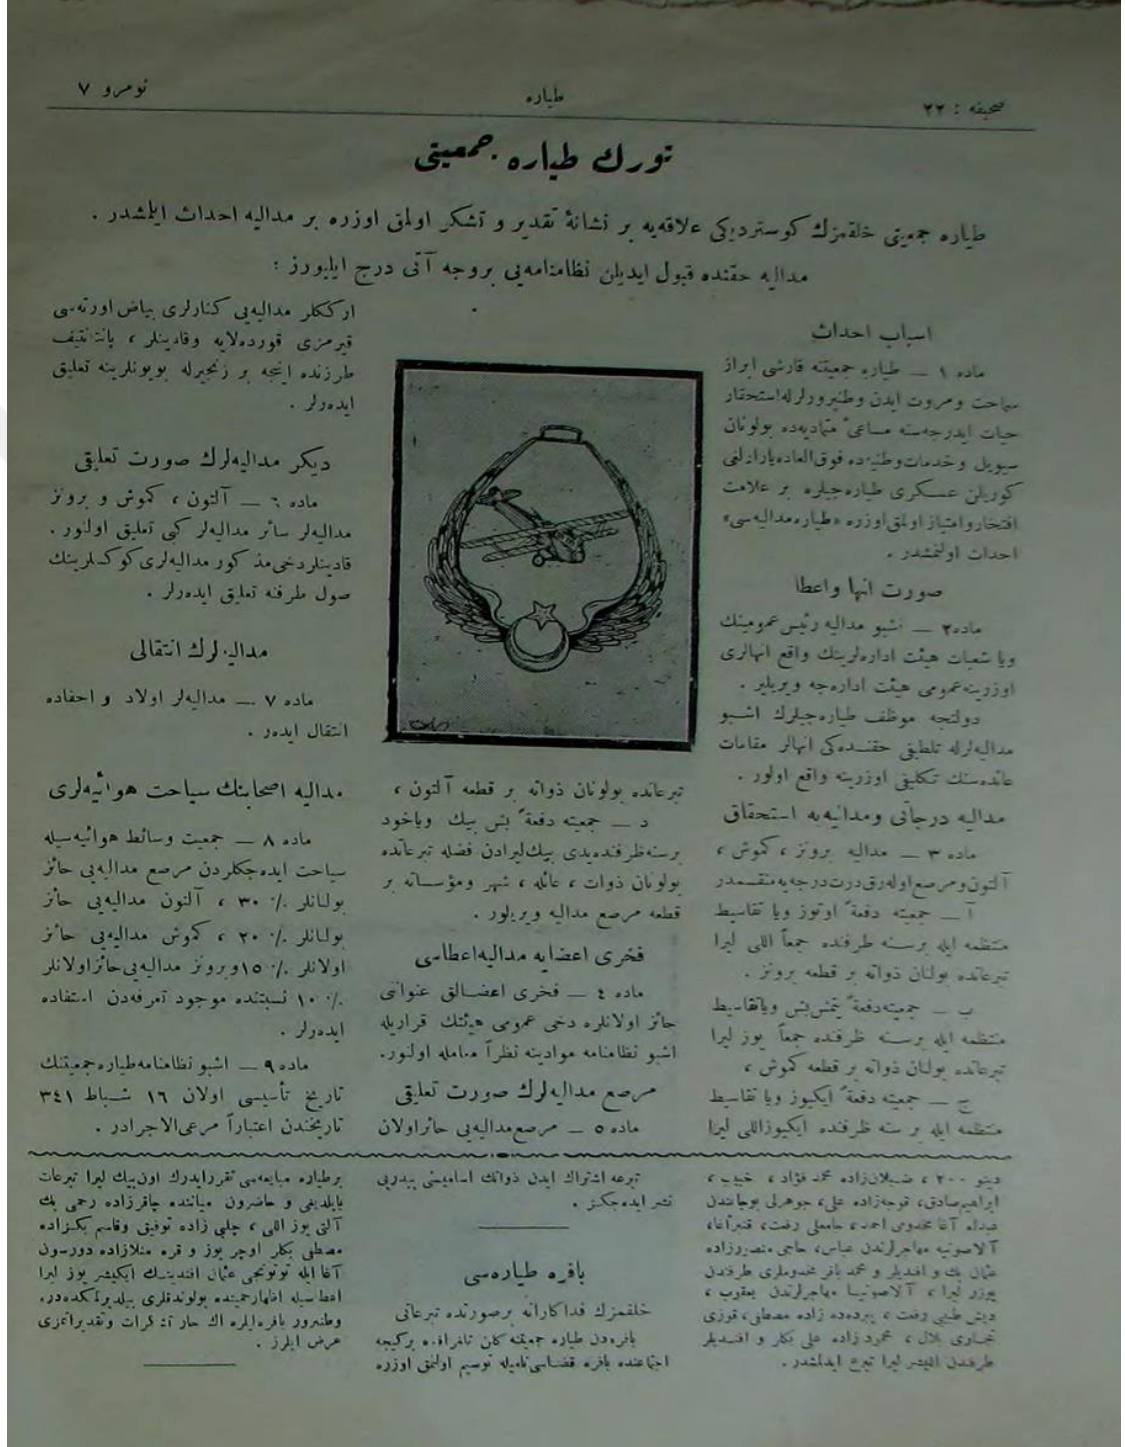 صحیفه : ٢٢
طیاره
نومرو ٧
تورك طیاره جمعیتی
طیاره جمعیتی خلقمزك كوستردیكی علاقه‌یه بر نشانهٔ تقدیر و تشكر اولمق اوزره بر مدالیه احداث ایلمشدر .
مدالیه حقنده قبول ایدیلن نظامنامه‌یی بروجه آتی درج ایلیورز :
اسباب احداث
ماده ١ — طیاره جمعیتنه قارشی ابراز
سماحت و مروت ایدن وطنپرورلرله استحقار
حیات ایدرجه‌سنه مساعیٔ متمادیه‌ده بولونان
سیویل و خدمات وطنیه‌ده فوق‌العاده یارارلغی
كوریلن عسكری طیاره‌جیلره بر علامت
افتخار و امتیاز اولمق اوزره «طیاره مدالیه‌سی»
احداث اولنمشدر .
صورت انها واعطا
ماده٢ — اشبو مدالیه رئیس عمومینك
ویا شعبات هیئت اداره‌لرینك واقع انهالری
اوزرینه عمومی هیئت اداره‌جه ویریلیر .
دولتجه موظف طیاره‌جیلرك اشبو
مدالیه‌لرله تلطیفی حقنده‌كی انهالر مقامات
عائده‌سنك تكلیفی اوزرینه واقع اولور .
مدالیه درجاتی ومدالیه‌یه استحقاق
ماده ٣ — مدالیه برونز ، كموش ،
آلتون و مرصع اوله‌رق درت درجه‌یه منقسمدر
آ — جمعیته دفعةً اوتوز ویا تقاسیط
منتظمه ایله برسنه ظرفنده جمعاً اللی لیرا
تبرعاتده بولنان ذواته بر قطعه برونز .
ب — جمعیته دفعةً یتمش‌بش ویا تقاسیط
منتظمه ایله برسنه ظرفنده جمعاً یوز لیرا
تبرعاتده بولنان ذواته بر قطعه كموش ،
ج — جمعیته دفعةً ایكیوز ویا تقاسیط
منتظمه ایله بر سنه ظرفنده ایكیوزاللی لیرا
تبرعاتده بولونان ذواته بر قطعه آلتون ،
د — جمعیته دفعةً بش بیك ویاخود
برسنه ظرفنده یدی بیك لیرادن فضله تبرعاتده
بولونان ذوات ، عائله ، شهر ومؤسساته بر
قطعه مرصع مدالیه ویریلور .
فخری اعضایه مدالیه اعطاسی
ماده ٤ — فخری اعضالق عنوانی
حائز اولانلره دخی عمومی هیئتك قراریله
اشبو نظامنامه موادینه نظراً معامله اولنور.
مرصع مدالیه‌لرك صورت تعلیقی
ماده ٥ — مرصع مدالیه‌یی حائز اولان
ارككلر مدالیه‌یی كنارلری بیاض اورته‌سی
قیرمزی قورده‌لایه وقادینلر ، پانتانتیف
طرزنده اینجه بر زنجیرله بویونلرینه تعلیق
ایده‌رلر .
دیكر مدالیه‌لرك صورت تعلیقی
ماده ٦ — آلتون ، كموش و برونز
مدالیه‌لر سائر مدالیه‌لر كبی تعلیق اولنور .
قادینلر دخی مذكور مدالیه‌لری كوكسلرینك
صول طرفنه تعلیق ایده‌رلر .
مدالیه‌لرك انتقالی
ماده ٧ — مدالیه‌لر اولاد و احفاده
انتقال ایده‌ر .
مدالیه اصحابنك سیاحت هوائیه‌لری
ماده ٨ — جمعیت وسائط هوائیه‌سیله
سیاحت ایده‌جكلردن مرصع مدالیه‌یی حائز
بولنانلر ٪ ٣٠ ، آلتون مدالیه‌یی حائز
بولنانلر ٪ ٢٠ ، كموش مدالیه‌یی حائز
اولانلر ٪ ١٥ وبرونز مدالیه‌یی حائز اولانلر
٪ ١٠ نسبتنده موجود تعرفه‌دن استفاده
ایده‌رلر .
ماده ٩ — اشبو نظامنامه طیاره جمعیتنك
تاریخ تأسیسی اولان ١٦ شباط ٣٤١
تاریخندن اعتباراً مرعی‌الاجرادر .
دینو ٢٠٠ ، زاده محمد فؤاد ، خبیب ،
ابراهیم صادق، قوجه‌زاده علی، جوهرلی
آغا مخدومی احمد، رفعت، قنبرآغا،
آلاصونیه مهاجرلرندن عباس، حاجی منصورزاده
عثمان بك و افندیلر و محمد باقر مخدوملری طرفندن
یوزر لیرا ، آلاصونیا مهاجرلرندن یعقوب ،
دیش طبیبی رفعت ، زاده مصطفی،
تجاری بلال ، محمود زاده علی بكار و افندیلر
طرفندن اللیشر لیرا تبرع ایدلمشدر .
تبرعه اشتراك ایدن ذواتك اسامیسنی پیدرپی
نشر ایده‌جكز .
بافره طیاره‌سی
خلقمزك فداكارانه برصورتده تبرعاتی
بافره‌دن طیاره جمعیتنه كلن تلغرافده بركیجه
اجتماعنده بافره قضاسی نامیله توسیم اولنمق اوزره
برطیاره مبایعه‌سی تقررایدرك اون بیك لیرا تبرعات
یاپلدیغی و حاضرون میاننده چاقرزاده رحمی بك
آلتی یوز اللی ، چلبی زاده توفیق وقاسم بكزاده
مصطفی بكلر اوچر یوز و قره منلازاده دورسون
آغا ایله توتونجی عثمان افندینك ایكیشر یوز لیرا
اعطا سیله اظهار حمیتده بولوندقلری بیلدیرلمكده‌در.
وطنپرور بافره‌لیلره اك حار تشكرات وتقدیراتمزی
عرض ایلرز .